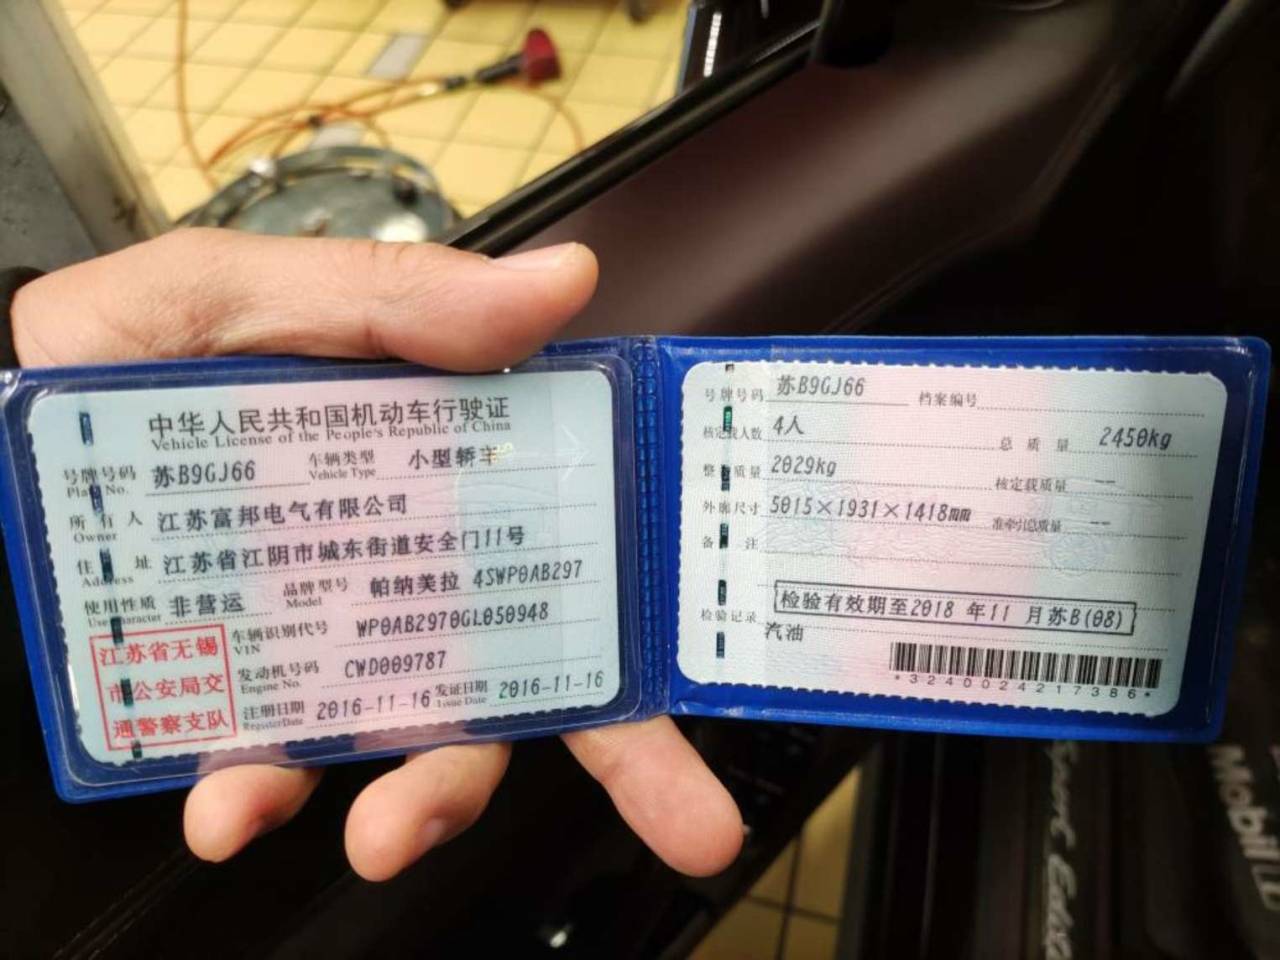 中华人民共和国机动车行驶证
Vehicle License of the People's Republic of China
号牌号码 苏B9GJ66 车辆类型 小型轿车
Plate No. Vehicle Type
所有人 江苏富邦电气有限公司
Owner
住址 江苏省江阴市城东街道安全门11号
Address
使用性质 非营运 品牌型号 帕纳美拉 4SWP0AB297
Use Character Model
车辆识别代号 WP0AB2970GL050948
VIN
发动机号码 CWD009787
Engine No.
注册日期 2016-11-16 发证日期 2016-11-16
Register Date Issue Date
江苏省无锡
市公安局交
通警察支队
号牌号码 苏B9GJ66 档案编号
核定载人数 4人 总质量 2450kg
整备质量 2029kg 核定载质量 --
外廓尺寸 5015×1931×1418mm 准牵引总质量 --
备注
检验记录 检验有效期至2018 年11 月苏B(08)
汽油
*3240024217386*
Mobil
Sport Edition